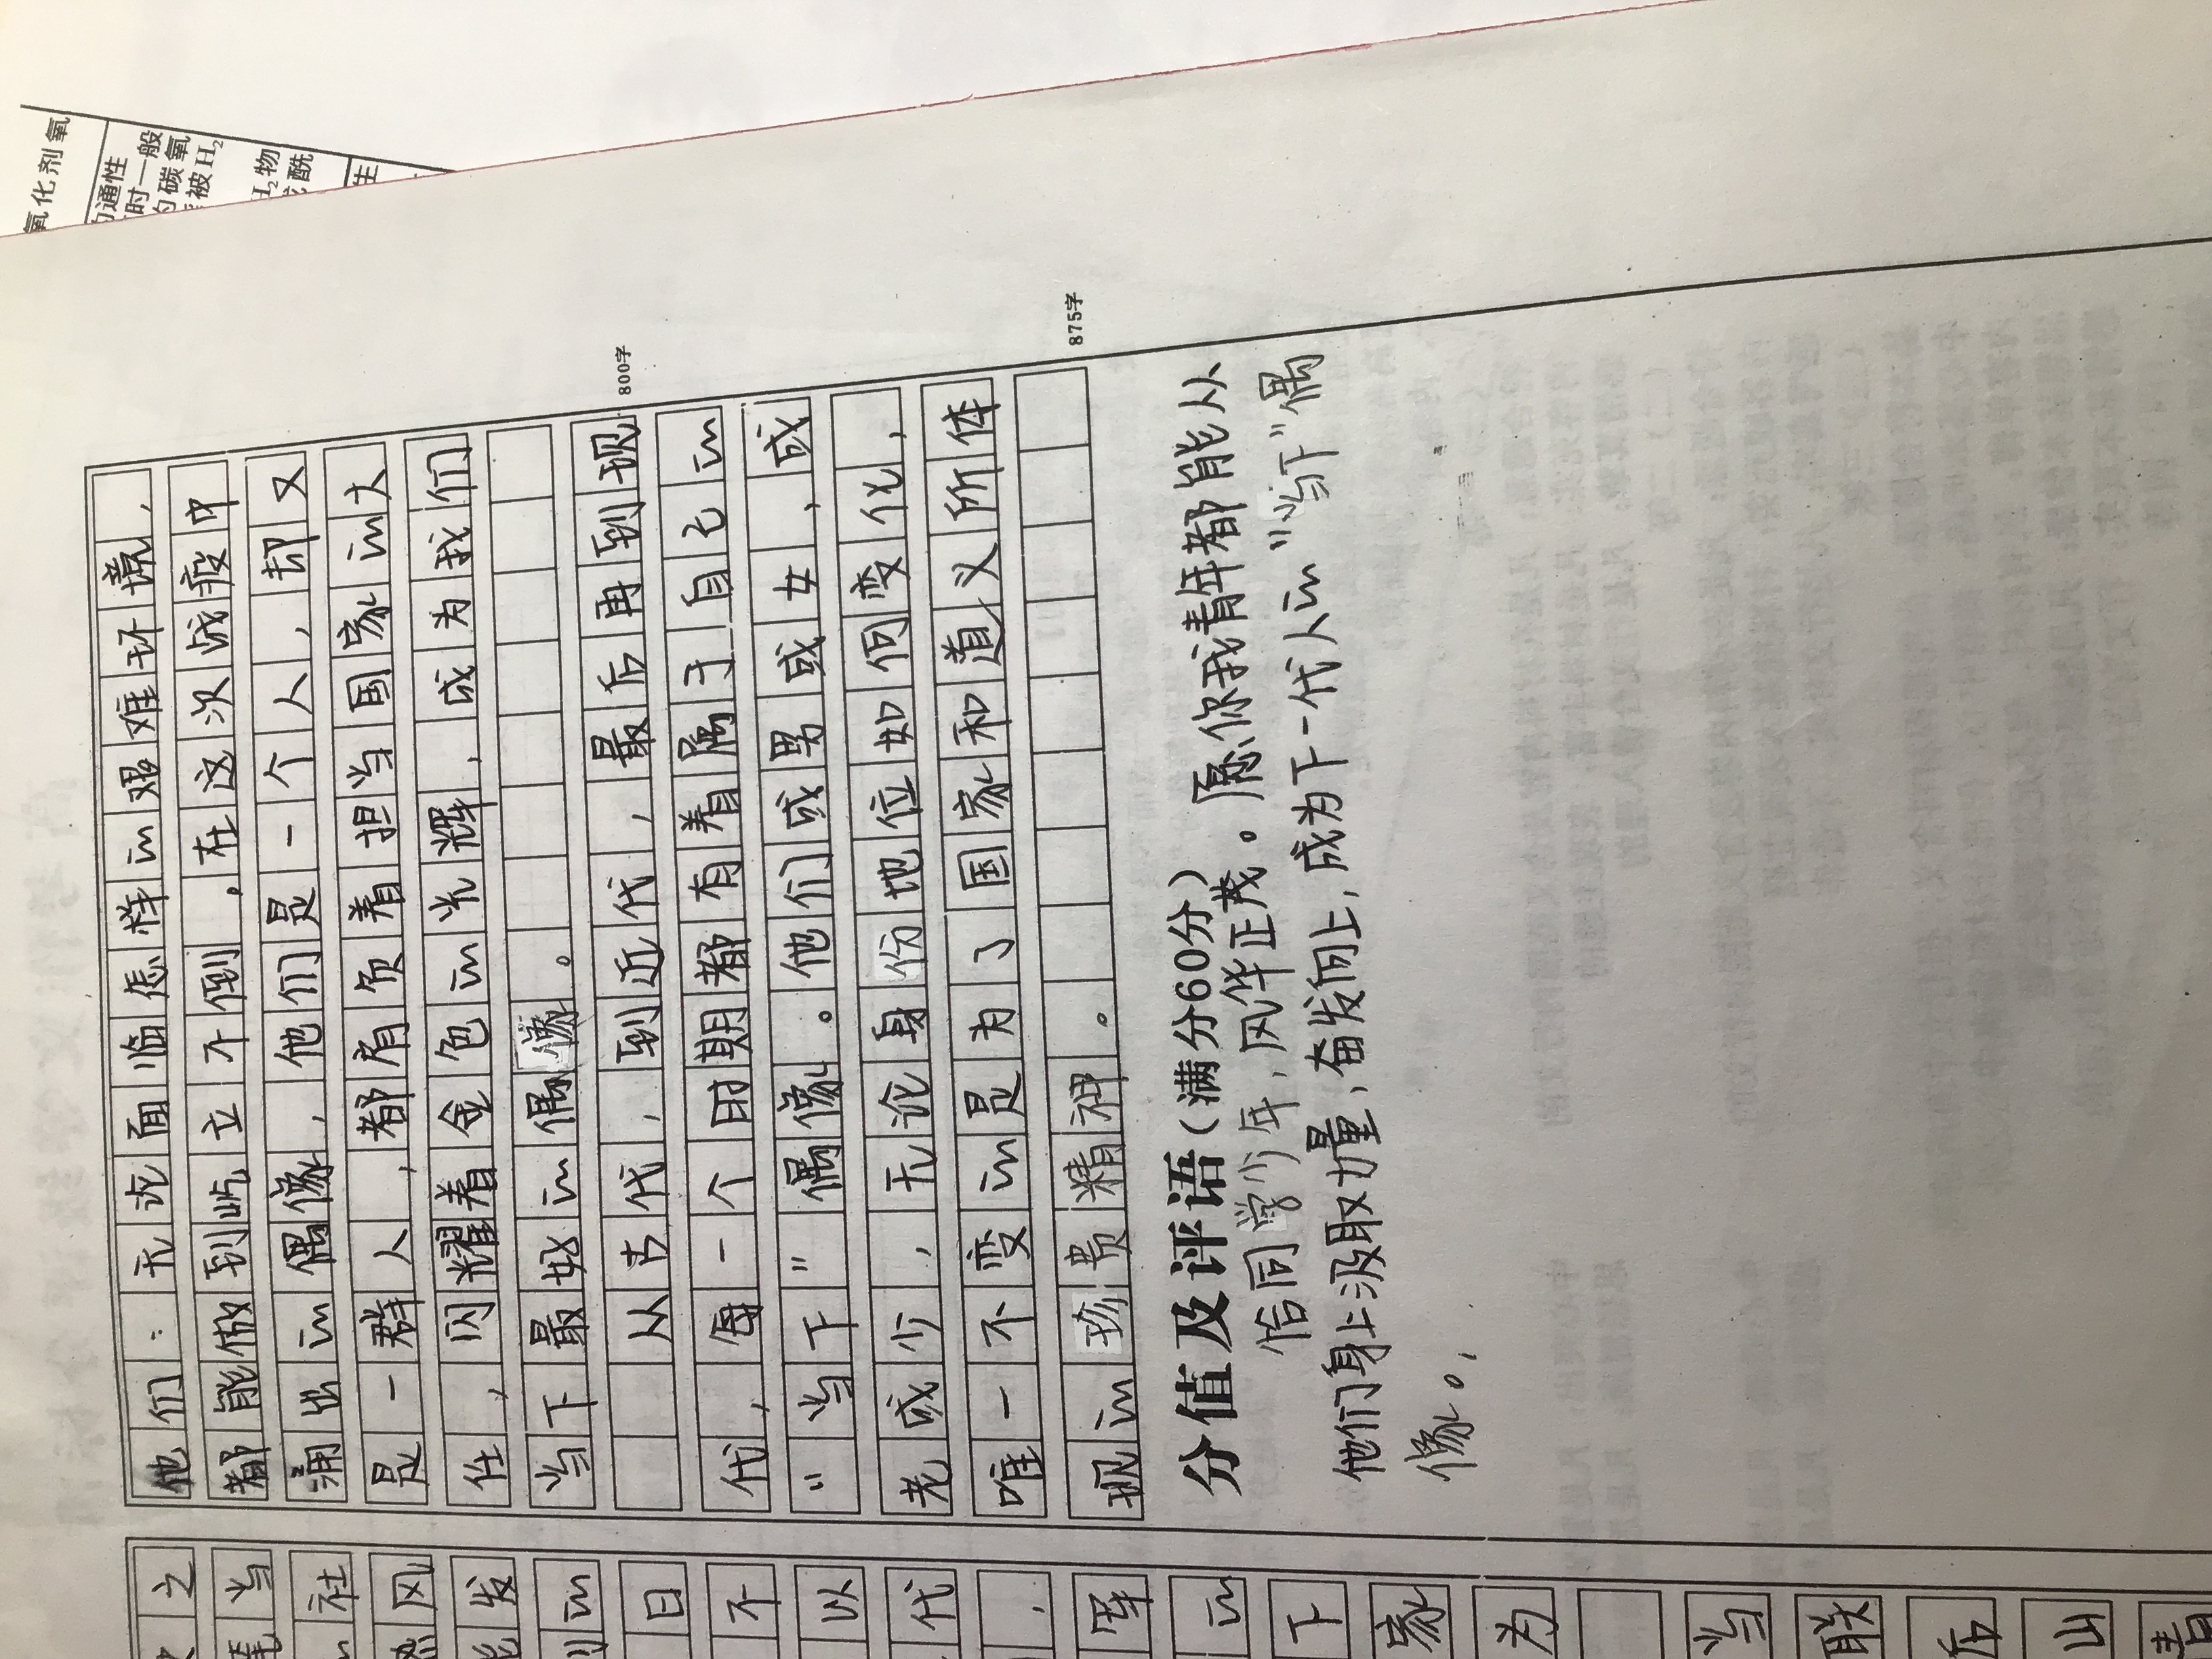 他们：无论面临怎样的艰难环境，
都能做到屹立不倒，在这次战疫中
涌出的偶像，他们是一个人，却又
是一群人，都肩负着担当国家的大
任，闪耀着金色的光辉，成为我们
当下最好的偶像。
从古代，到近代，最后再到现
800字
代，每一个时期都有着属于自己的
“当下”偶像。他们或男或女，或
老或少，无论身份地位如何变化，
唯一不变的是为了国家和道义所体
现的珍贵精神。
875字
分值及评语(满分60分)
恰同学少年，风华正茂。愿你我青年都能从
他们身上汲取力量，奋发向上，成为下一代人的“当下”偶
像。
之
当
社
风
能发
的
日
不
以
代
，
军
的
下
家
为
当
联
后
山
青
氧化剂氧
的通性
时一般
碳氧
被H₂
H₂物
或酰
生